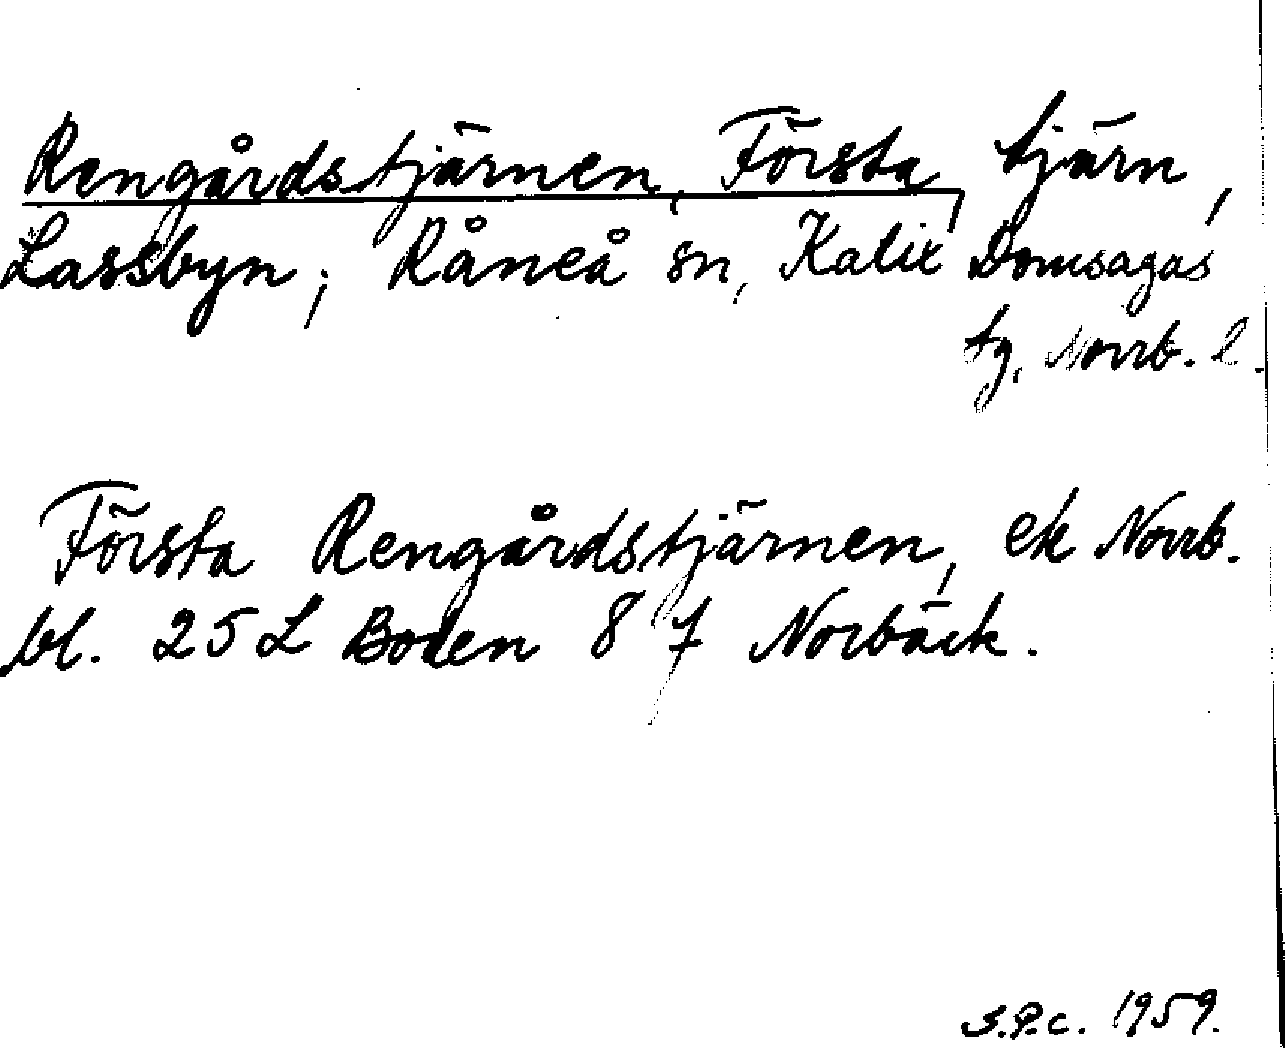 Rengårdstjärnen, Första, tjärn,
Lassbyn; Råneå sn, Kalix Domsagas
tg, Norrb. l.
Första Rengårdstjärnen, ek Norrb.
bl. 25 L Boden 8 f Norbäck.
S.P.c. 1959.